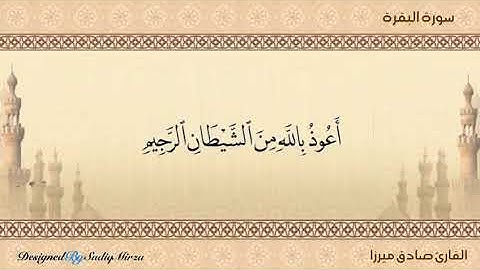 سورة البقرة
أَعُوذُ بِاللَّهِ مِنَ ٱلشَّيْطَانِ ٱلرَّجِيمِ
DesignedBySadiqMirza
القارئ صادق ميرزا